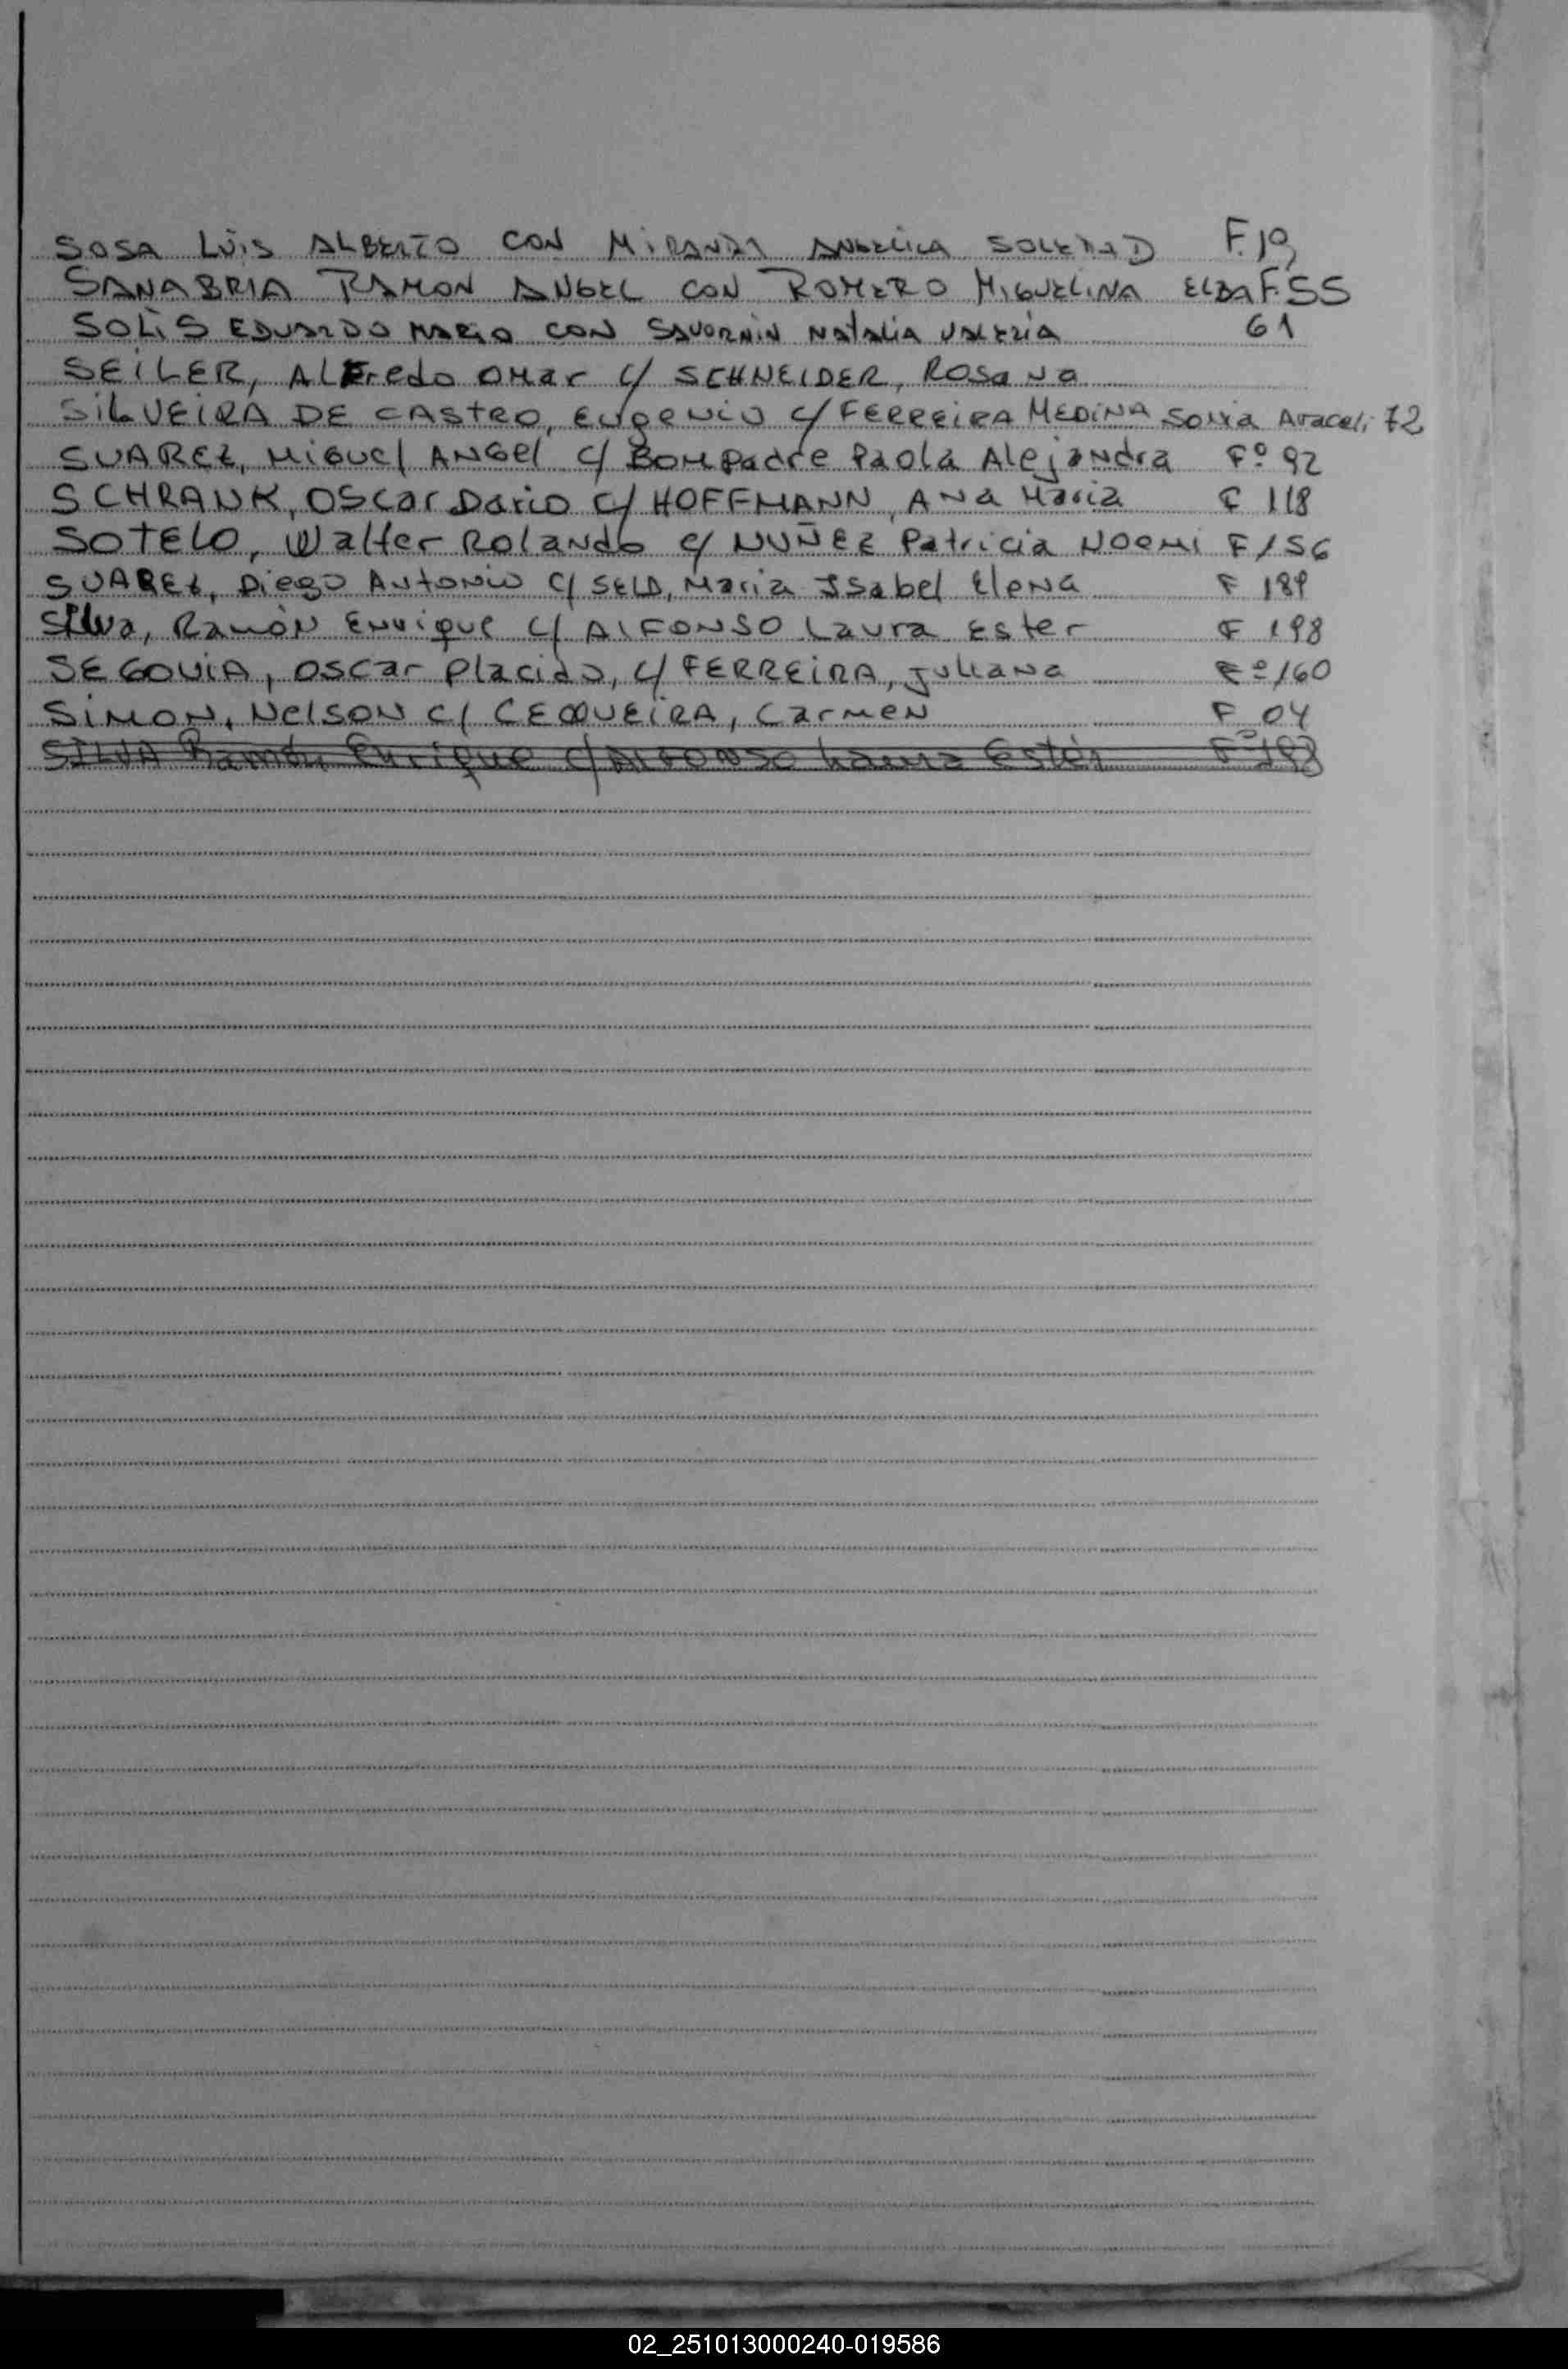 SOSA LUIS ALBERTO CON MIRANDA ANGELICA SOLEDAD F.19
SANABRIA RAMON ANGEL CON ROMERO MIGUELINA ELBA F.55
SOLIS EDUARDO MARIO CON SAVORNIN NATALIA VALERIA 61
SEILER, ALFredo OMar C/ SCHNEIDER, ROSANA
SILVEIRA DE CASTRO, EUGENIO C/ FERREIRA MEDINA Sonia Araceli 72
SUAREZ, MIGUEL ANGEL C/ BOMPadre Paola Alejandra Fº 92
SCHRANK, OSCAR Dario C/ HOFFMANN, ANA Maria F 118
SOTELO, Walter Rolando C/ NUÑEZ Patricia NOEMI F 156
SUAREZ, Diego Antonio C/ Maria Isabel Elena F 189
Silva, Ramón Enrique C/ ALFONSO Laura Ester F 198
SEGOVIA, OSCAR Placido, C/ FERREIRA, Juliana Fº 160
SIMON, NELSON C/ CEQUEIRA, CARMEN F 04
SILVA Ramón Enrique C/ ALFONSO Laura Estér Fº 198
02_251013000240-019586